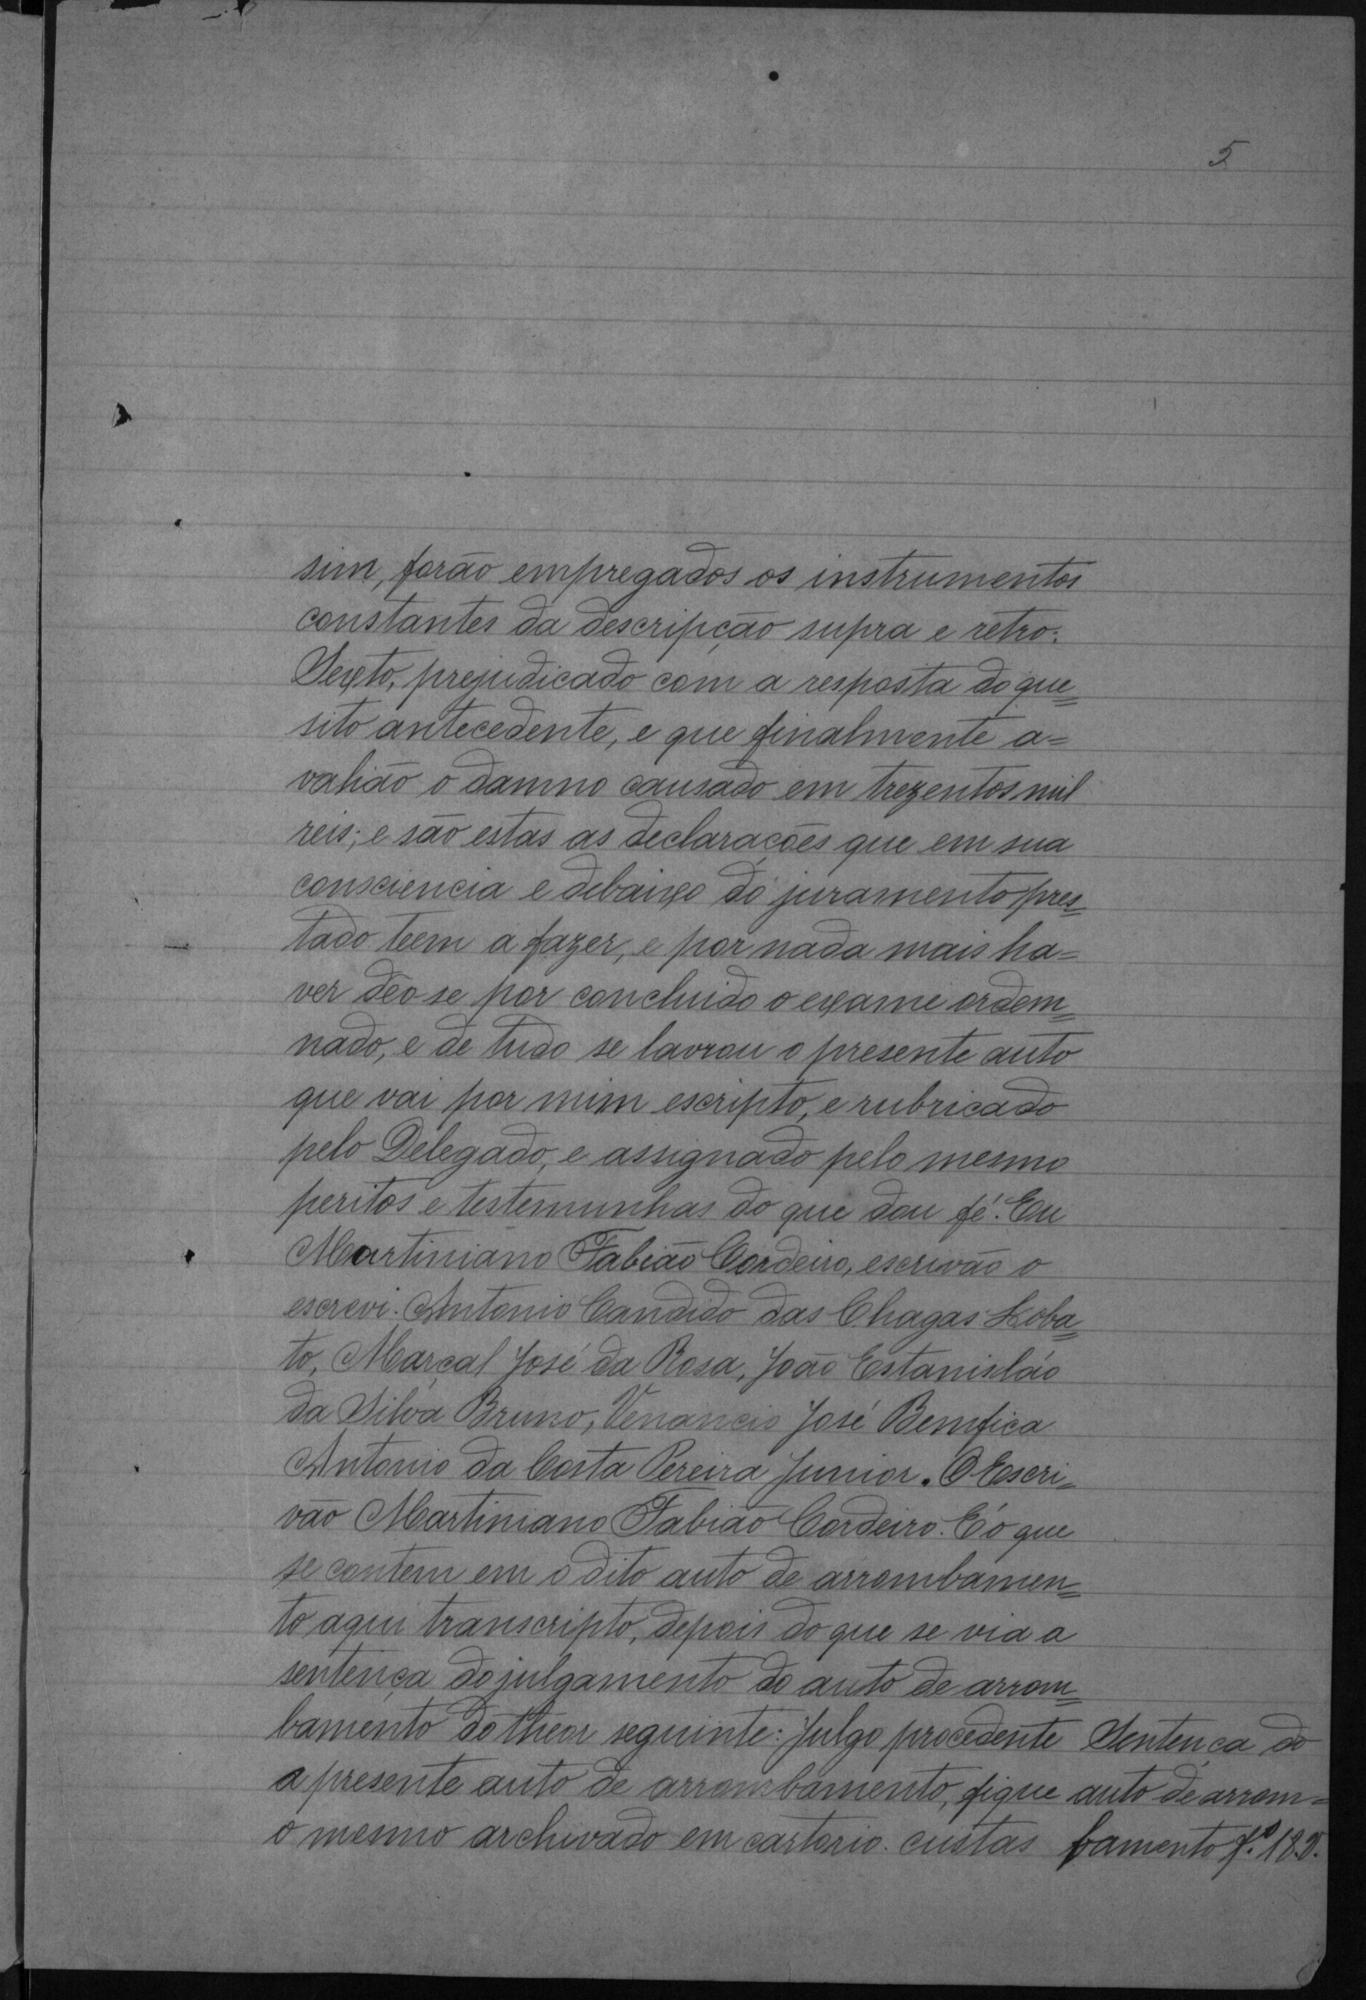 5
sim, forão empregados os instrumentos
constantes da descripção supra e retro.
Sexto, prejudicado com a resposta do que=
sito antecedente, e que finalmente a=
valião o damno causado em trezentos mil
reis; e são estas as declarações que em sua
consciencia e debaixo do juramento pres=
tado teem a fazer, e por nada mais ha=
ver dêo-se por concluido o exame ordem=
nado, e de tudo se lavrou o presente auto
que vai por mim escripto, e rubricado
pelo Delegado, e assignado pelo mesmo
peritos e testemunhas do que dou fé. Eu
Martiniano Fabião Cordeiro, escrivão o
escrevi. Antonio Candido das Chagas Loba=
to, Marçal José da Rosa, João Estanisláo
da Silva Bruno, Venancio José Bemfica
Antonio da Costa Pereira Junior. O Escri=
vão Martiniano Fabião Cordeiro. É o que
se contem em o dito auto de arrombamen=
to aqui transcripto, depois do que se via a
sentença do julgamento do auto de arrom=
bamento do theor seguinte: Julgo procedente
a presente auto de arrombamento, fique
o mesmo archivado em cartorio. custas
Sentença do
auto de arrom=
bamento f.º